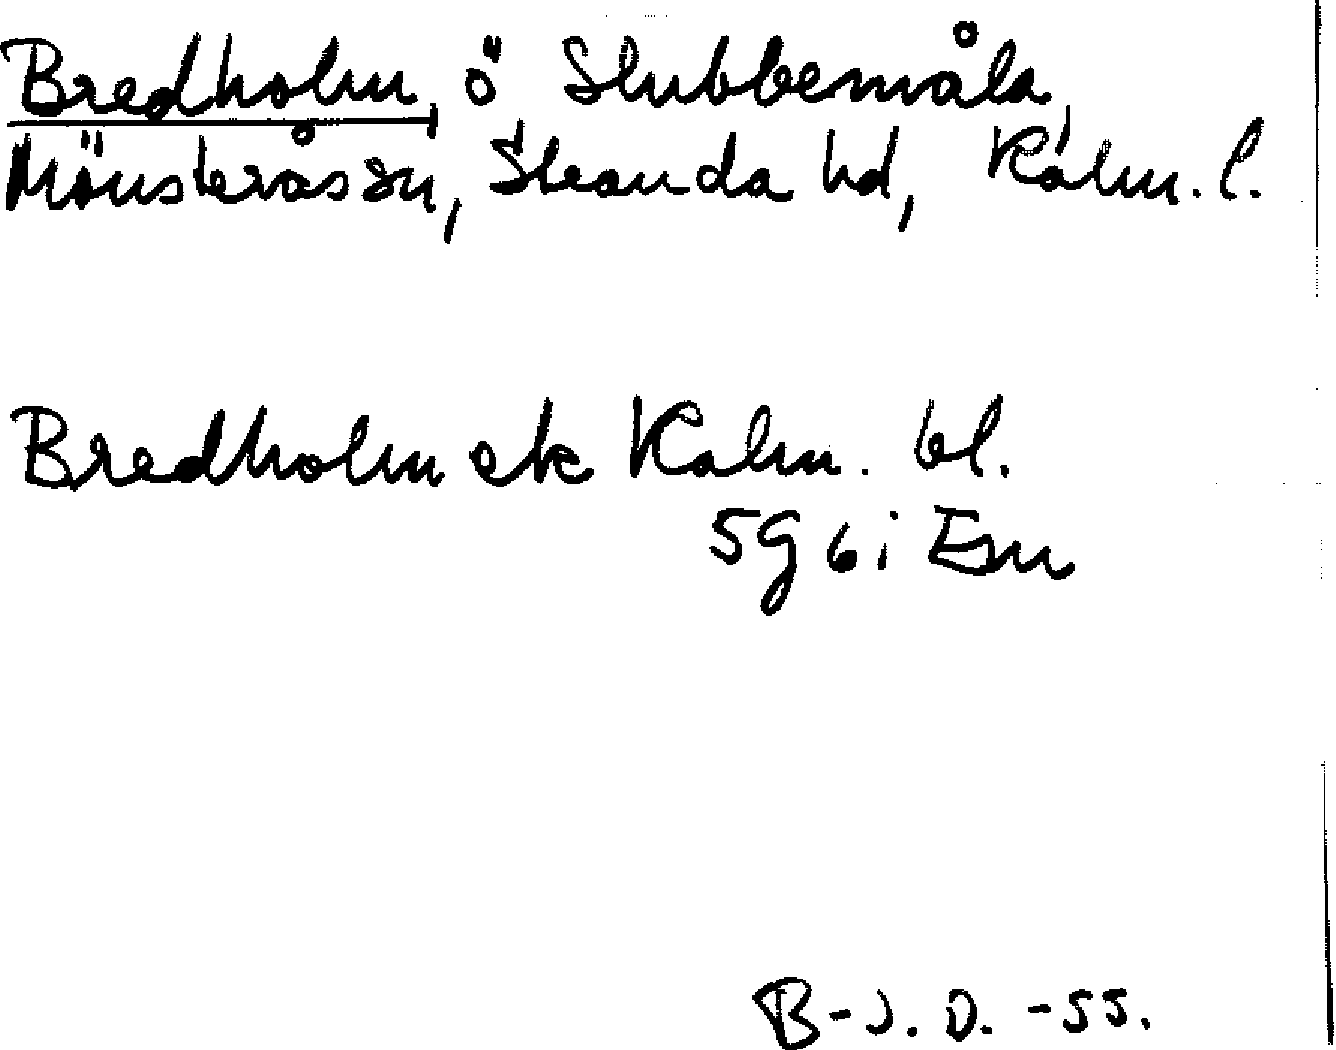 Bredholm, ö Slubbemåla,
Mönsterås sn, Stranda hd, Kalm. l.
Bredholm ek Kalm. bl.
5g 6 i Esm
B-J. D. -55.